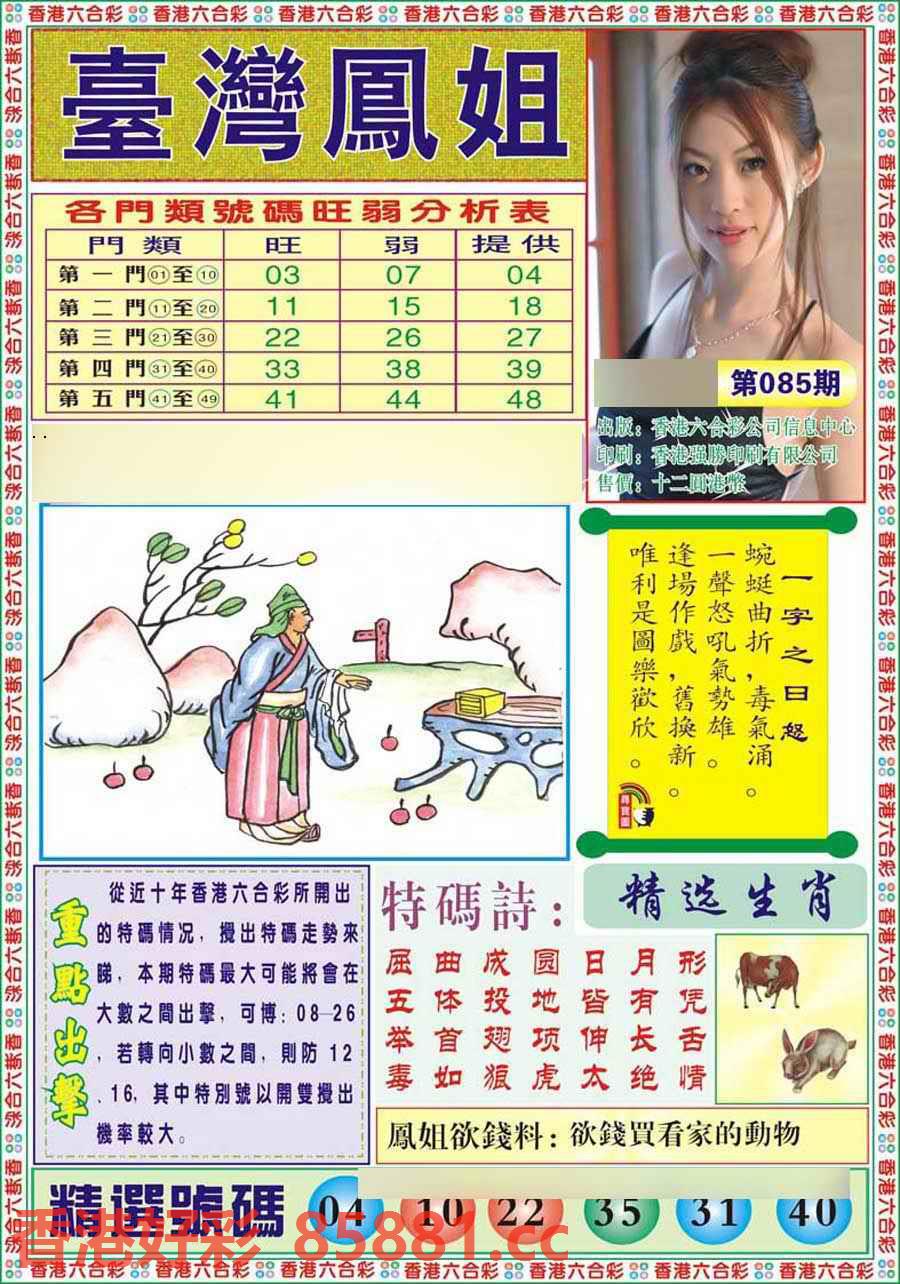 香港六合彩
臺灣鳳姐
各門類號碼旺弱分析表
門類 旺 弱 提供
第一門01至10 03 07 04
第二門11至20 11 15 18
第三門21至30 22 26 27
第四門31至40 33 38 39
第五門41至49 41 44 48
第085期
出版：香港六合彩公司信息中心
印刷：香港强勝印刷有限公司
售價：十二圓港幣
一字之曰怒
蜿蜒曲折，毒氣涌。
一聲怒吼氣勢雄。
逢場作戲，舊換新。
唯利是圖樂歡欣。
尋寶圖
重點出擊
從近十年香港六合彩所開出
的特碼情况，攪出特碼走勢來
睇，本期特碼最大可能將會在
大數之間出擊，可博：08—26
，若轉向小數之間，則防 12
、16，其中特別號以開雙攪出
機率較大。
特碼詩：
屈曲成圆日月形
五体投地皆有凭
举首翅项伸长舌
毒如狼虎太绝情
精选生肖
鳳姐欲錢料：欲錢買看家的動物
精選號碼 04 10 22 35 31 40
香港好彩 85881.cc